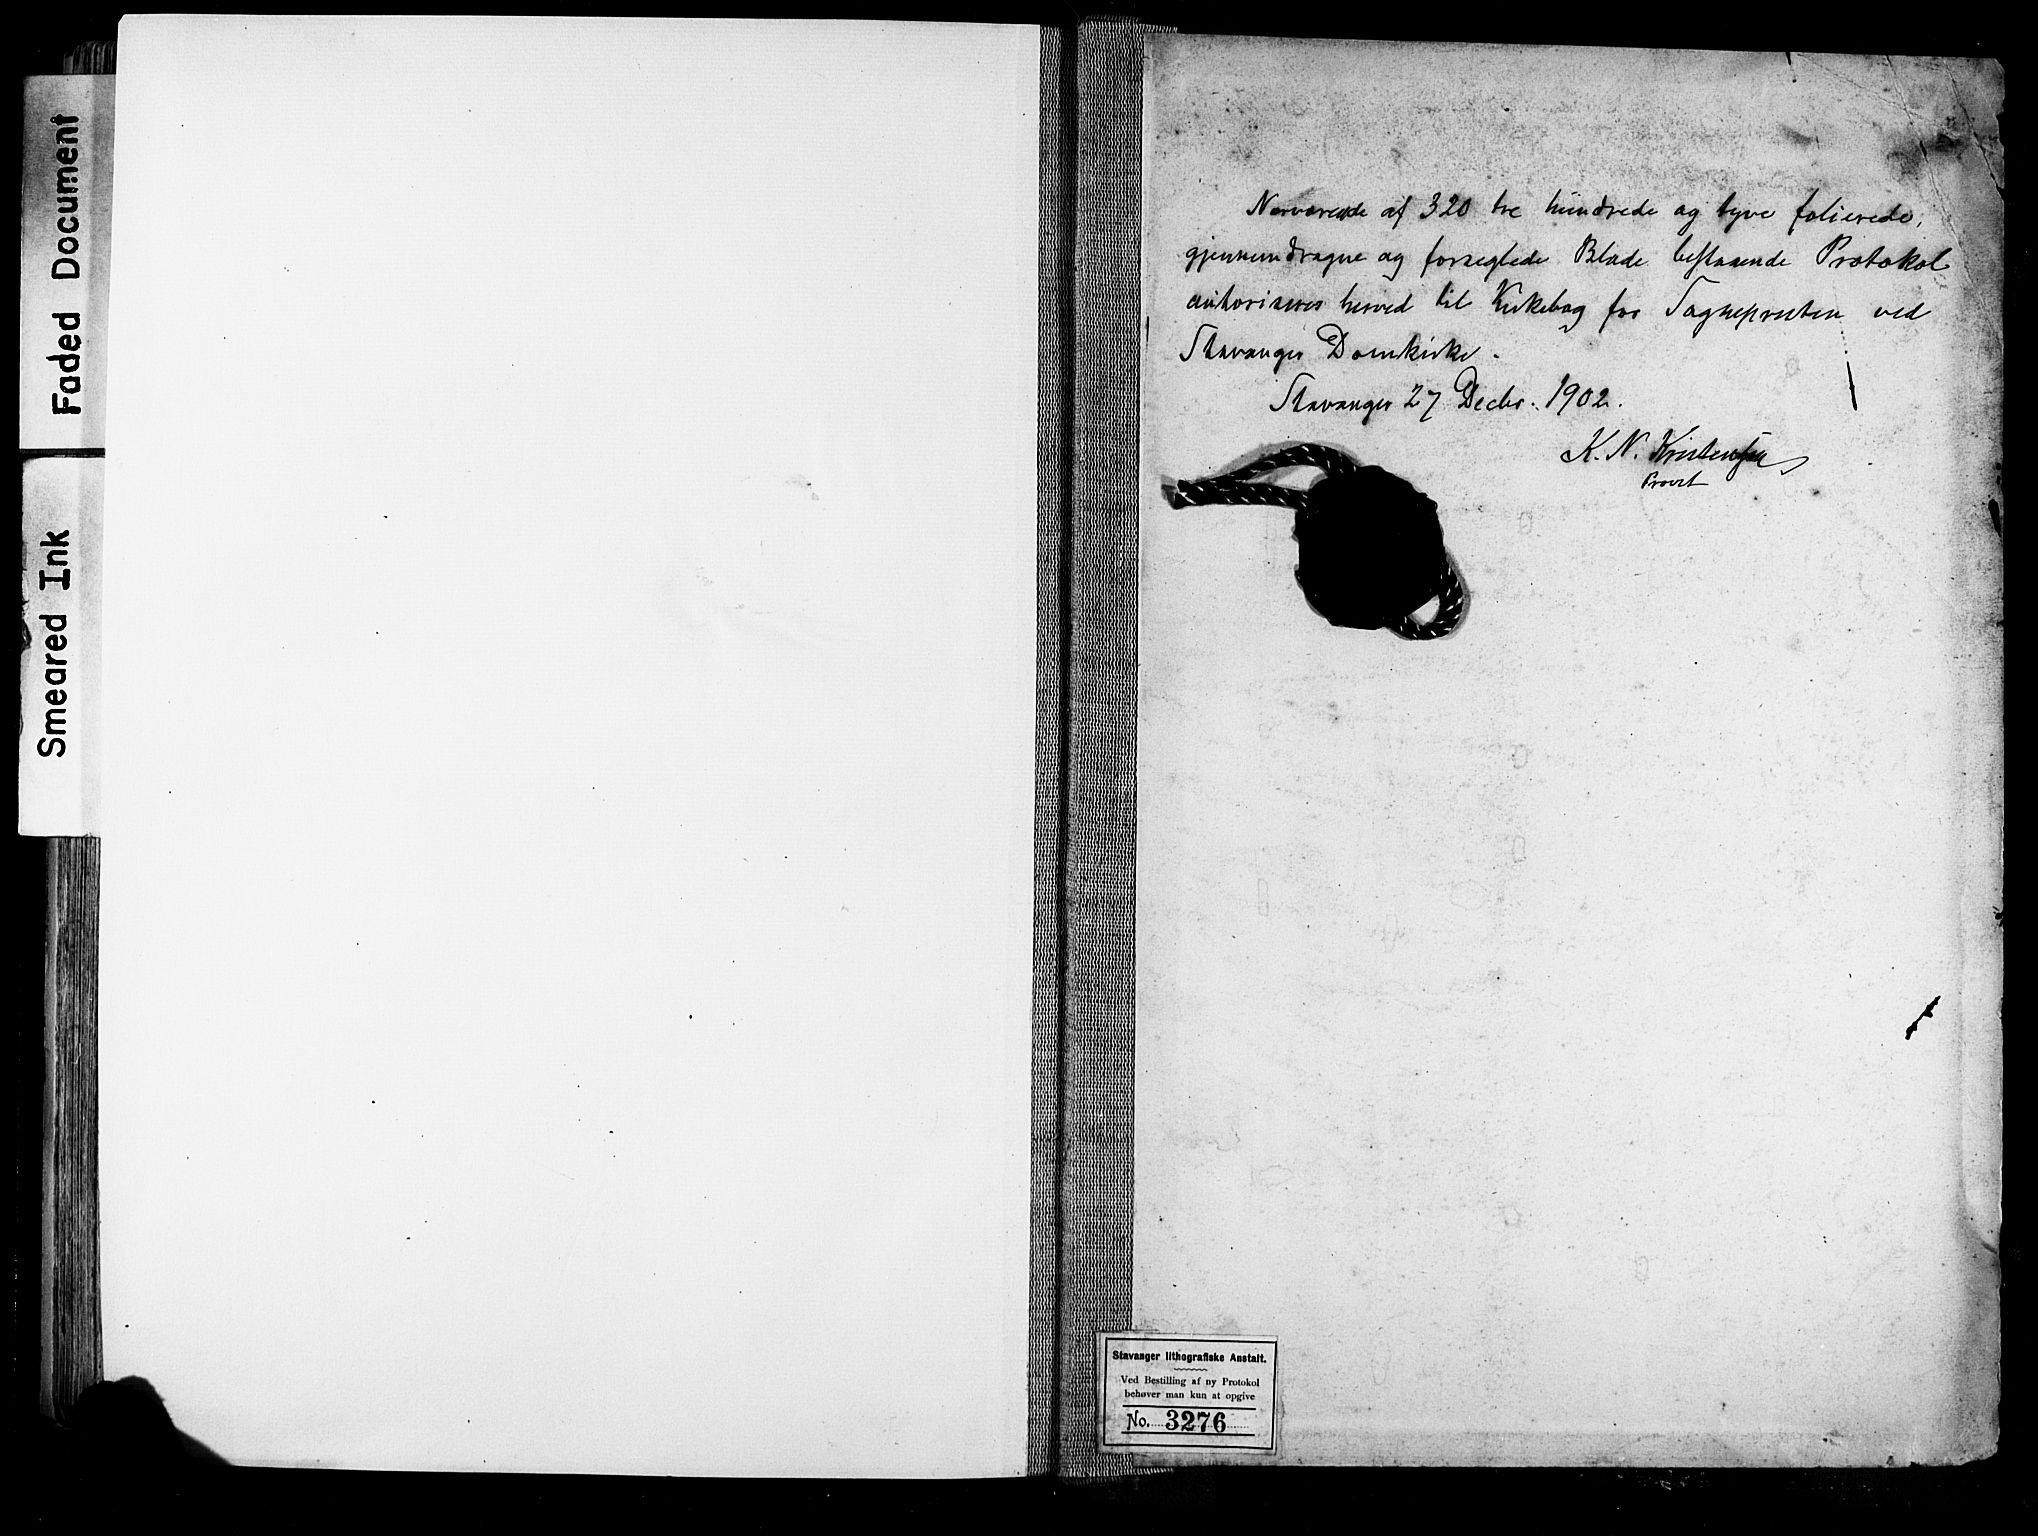 Faded Document
Smeared Ink
Nærværende af 320 tre hundrede og tyve folierede,
gjennemdragne og forseglede Blade bestaaende Protokol
authoriseres herved til Kirkebog for Sognepresten ved
Stavanger Domkirke.
Stavanger 27 Decbr. 1902.
K. N. Kristensen
Provst
Stavanger lithografiske Anstalt.
Ved Bestilling af ny Protokol
behøver man kun at opgive
No. 3276